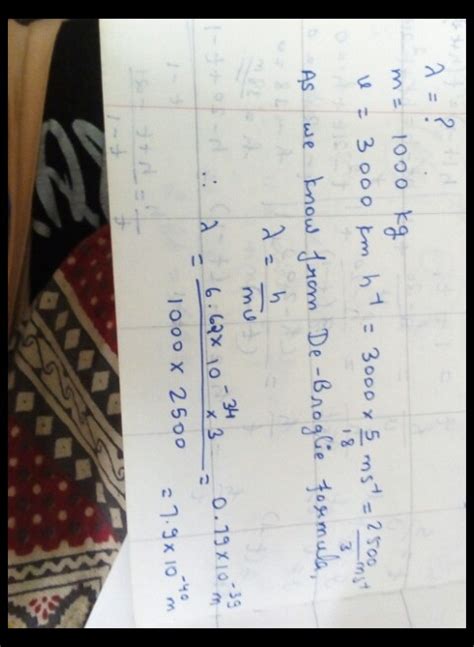 λ = ?
m = 1000 kg
v = 3000 km h⁻¹ = 3000 × 5/18 ms⁻¹ = 2500/3 ms⁻¹
As we know from De-Broglie formula,
λ = h/mv
∴ λ = 6.62 × 10⁻³⁴ × 3 / 1000 × 2500 = 0.79 × 10⁻³⁹ m
= 7.9 × 10⁻⁴⁰ m